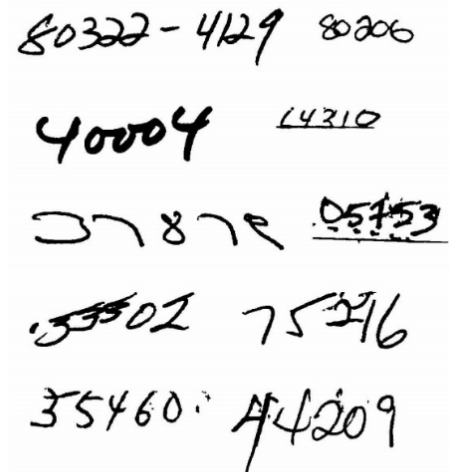 80322-4129 80206
40004 14310
37878 05753
.35502 75216
35460. 44209